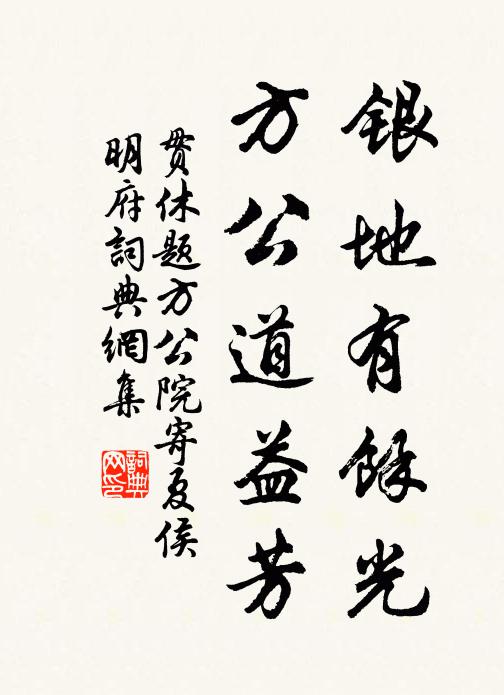 銀地有餘光
方公道益芳
贯休题方公院寄夏侯
明府詞典網集
詞典
网印